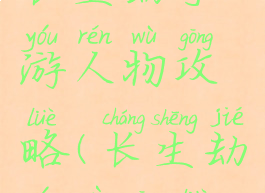 yóu rén wù gōng
游人物攻
lüè cháng shēng jié
略(长生劫